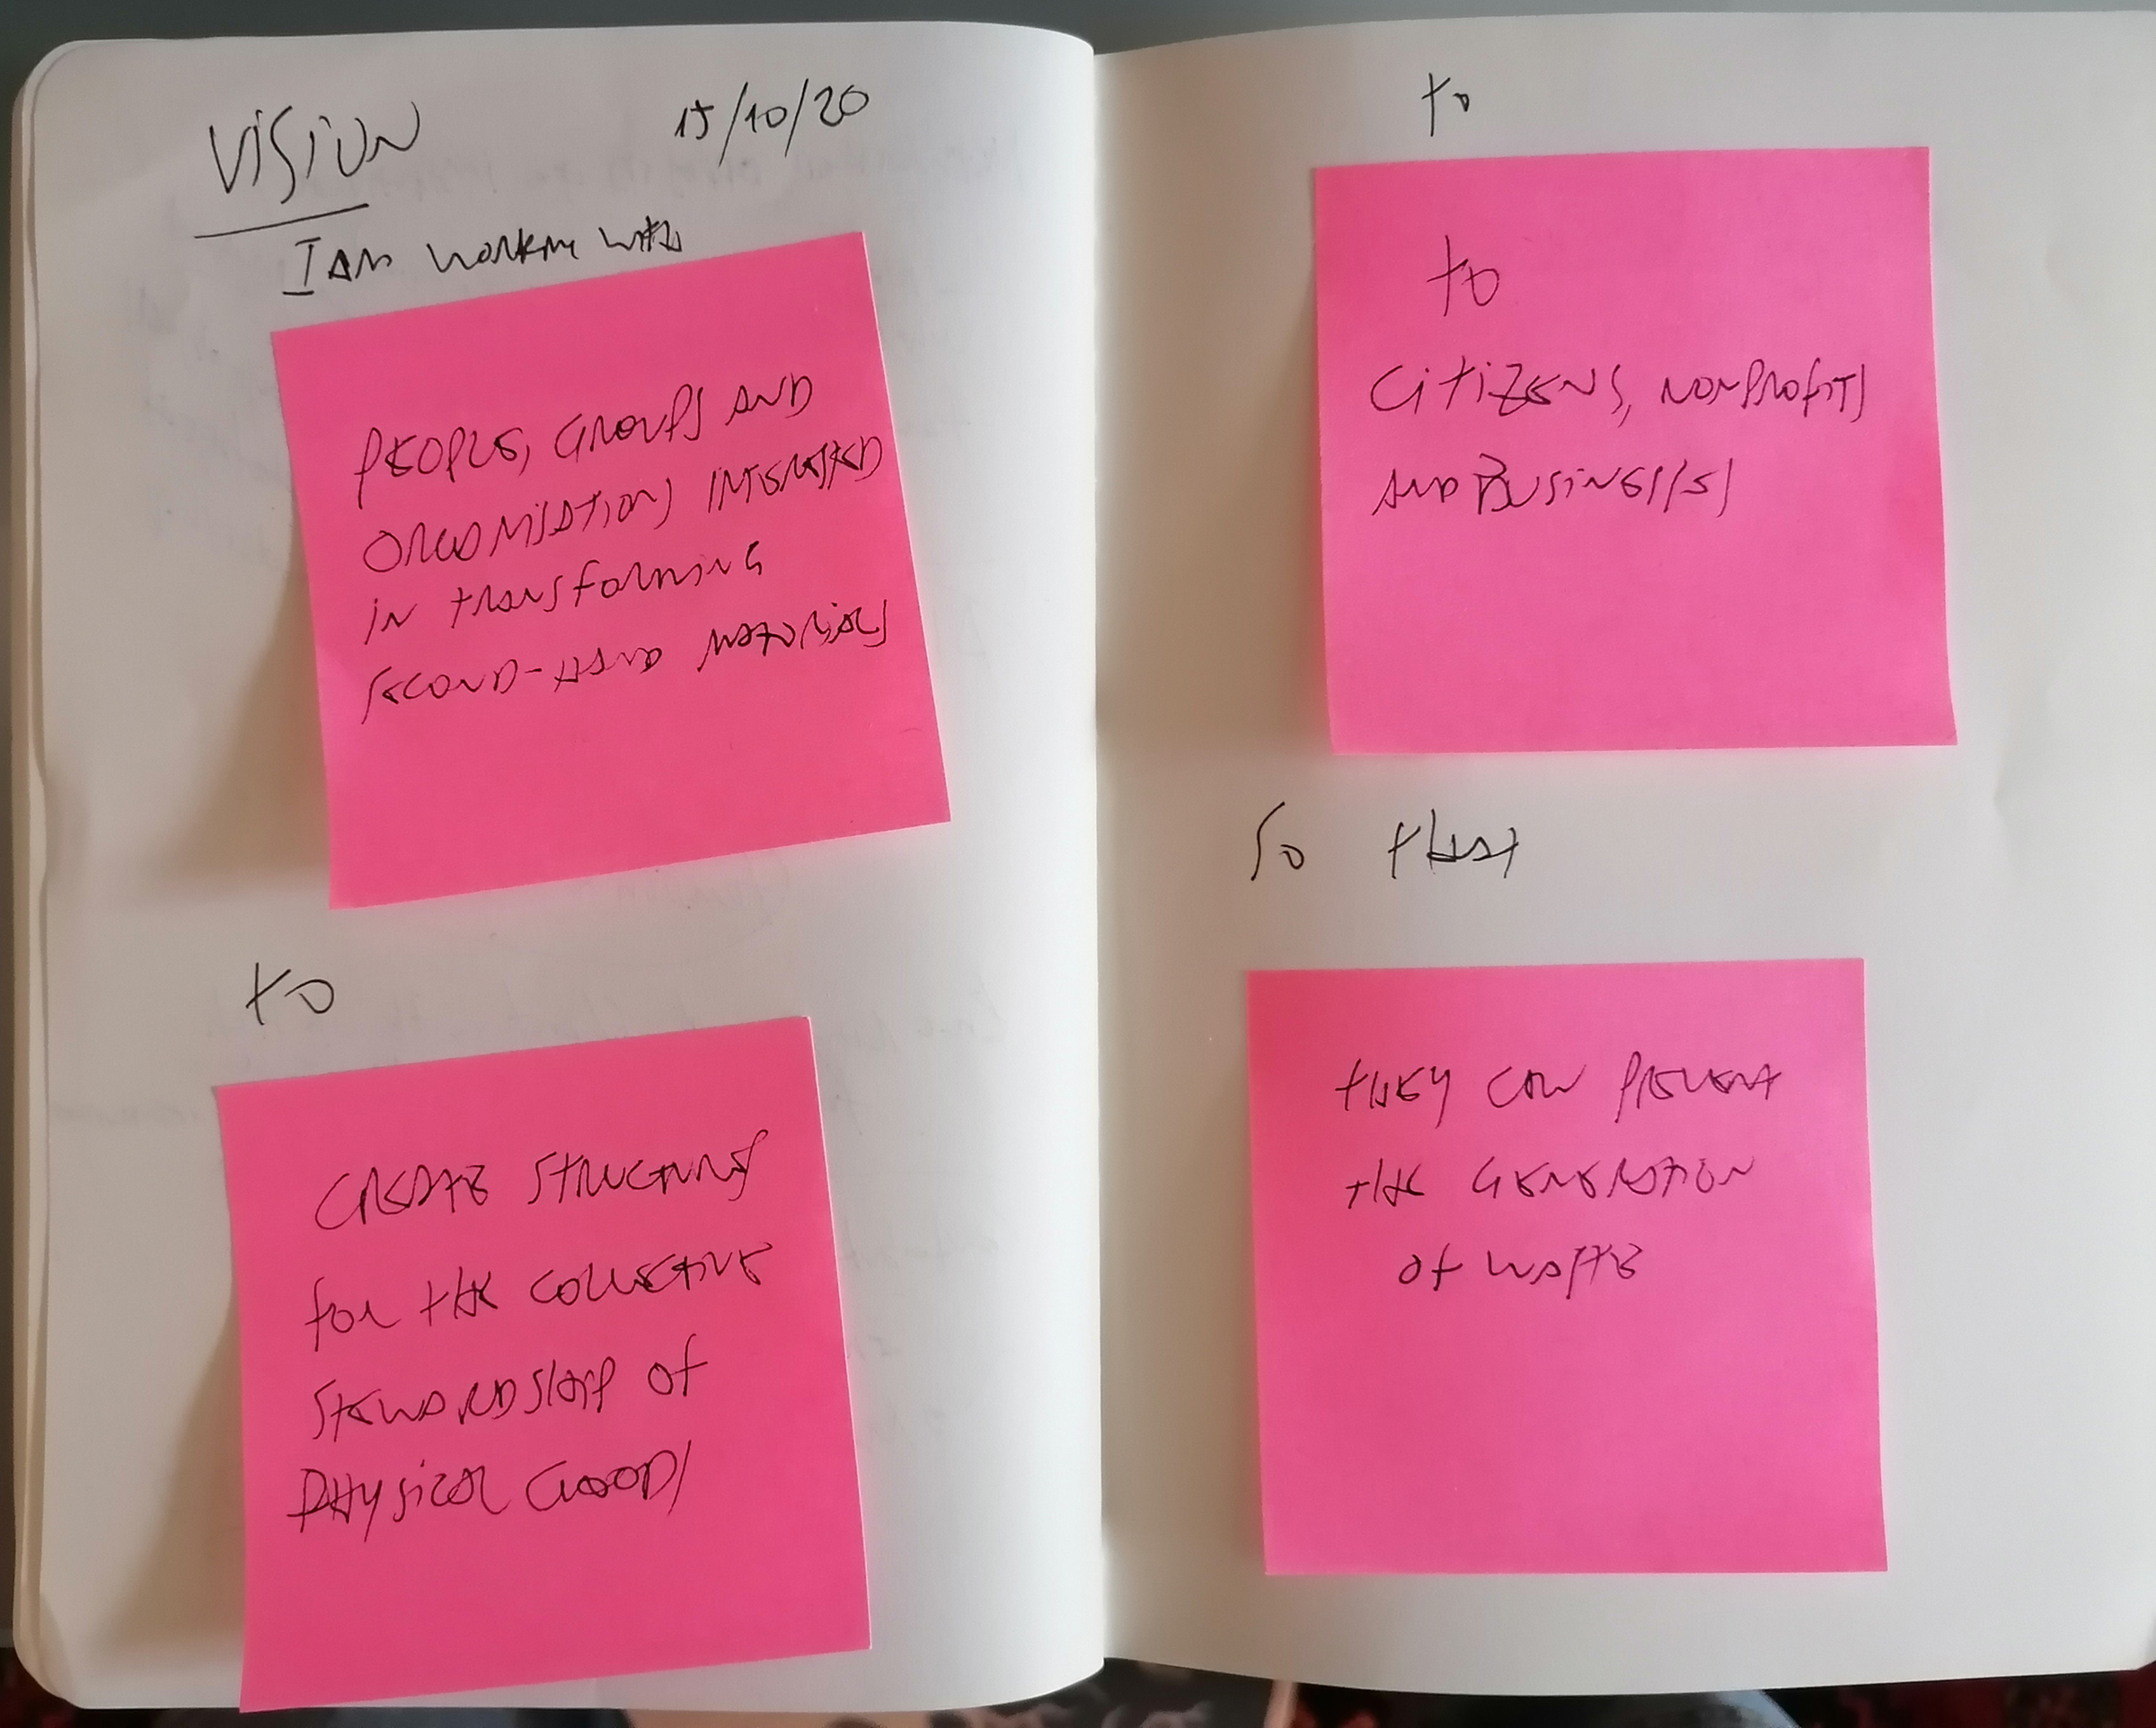 VISION
15/10/20
I AM WORKING WITH
PEOPLE, GROUPS AND
ORGANISATIONS INTERESTED
IN TRANSFORMING
SECOND-HAND MATERIALS
TO
CREATE STRUCTURES
FOR THE COLLECTIVE
STEWARDSHIP OF
PHYSICAL GOODS
TO
TO
CITIZENS, NONPROFITS
AND BUSINESS(ES)
SO THAT
THEY CAN PREVENT
THE GENERATION
OF WASTE